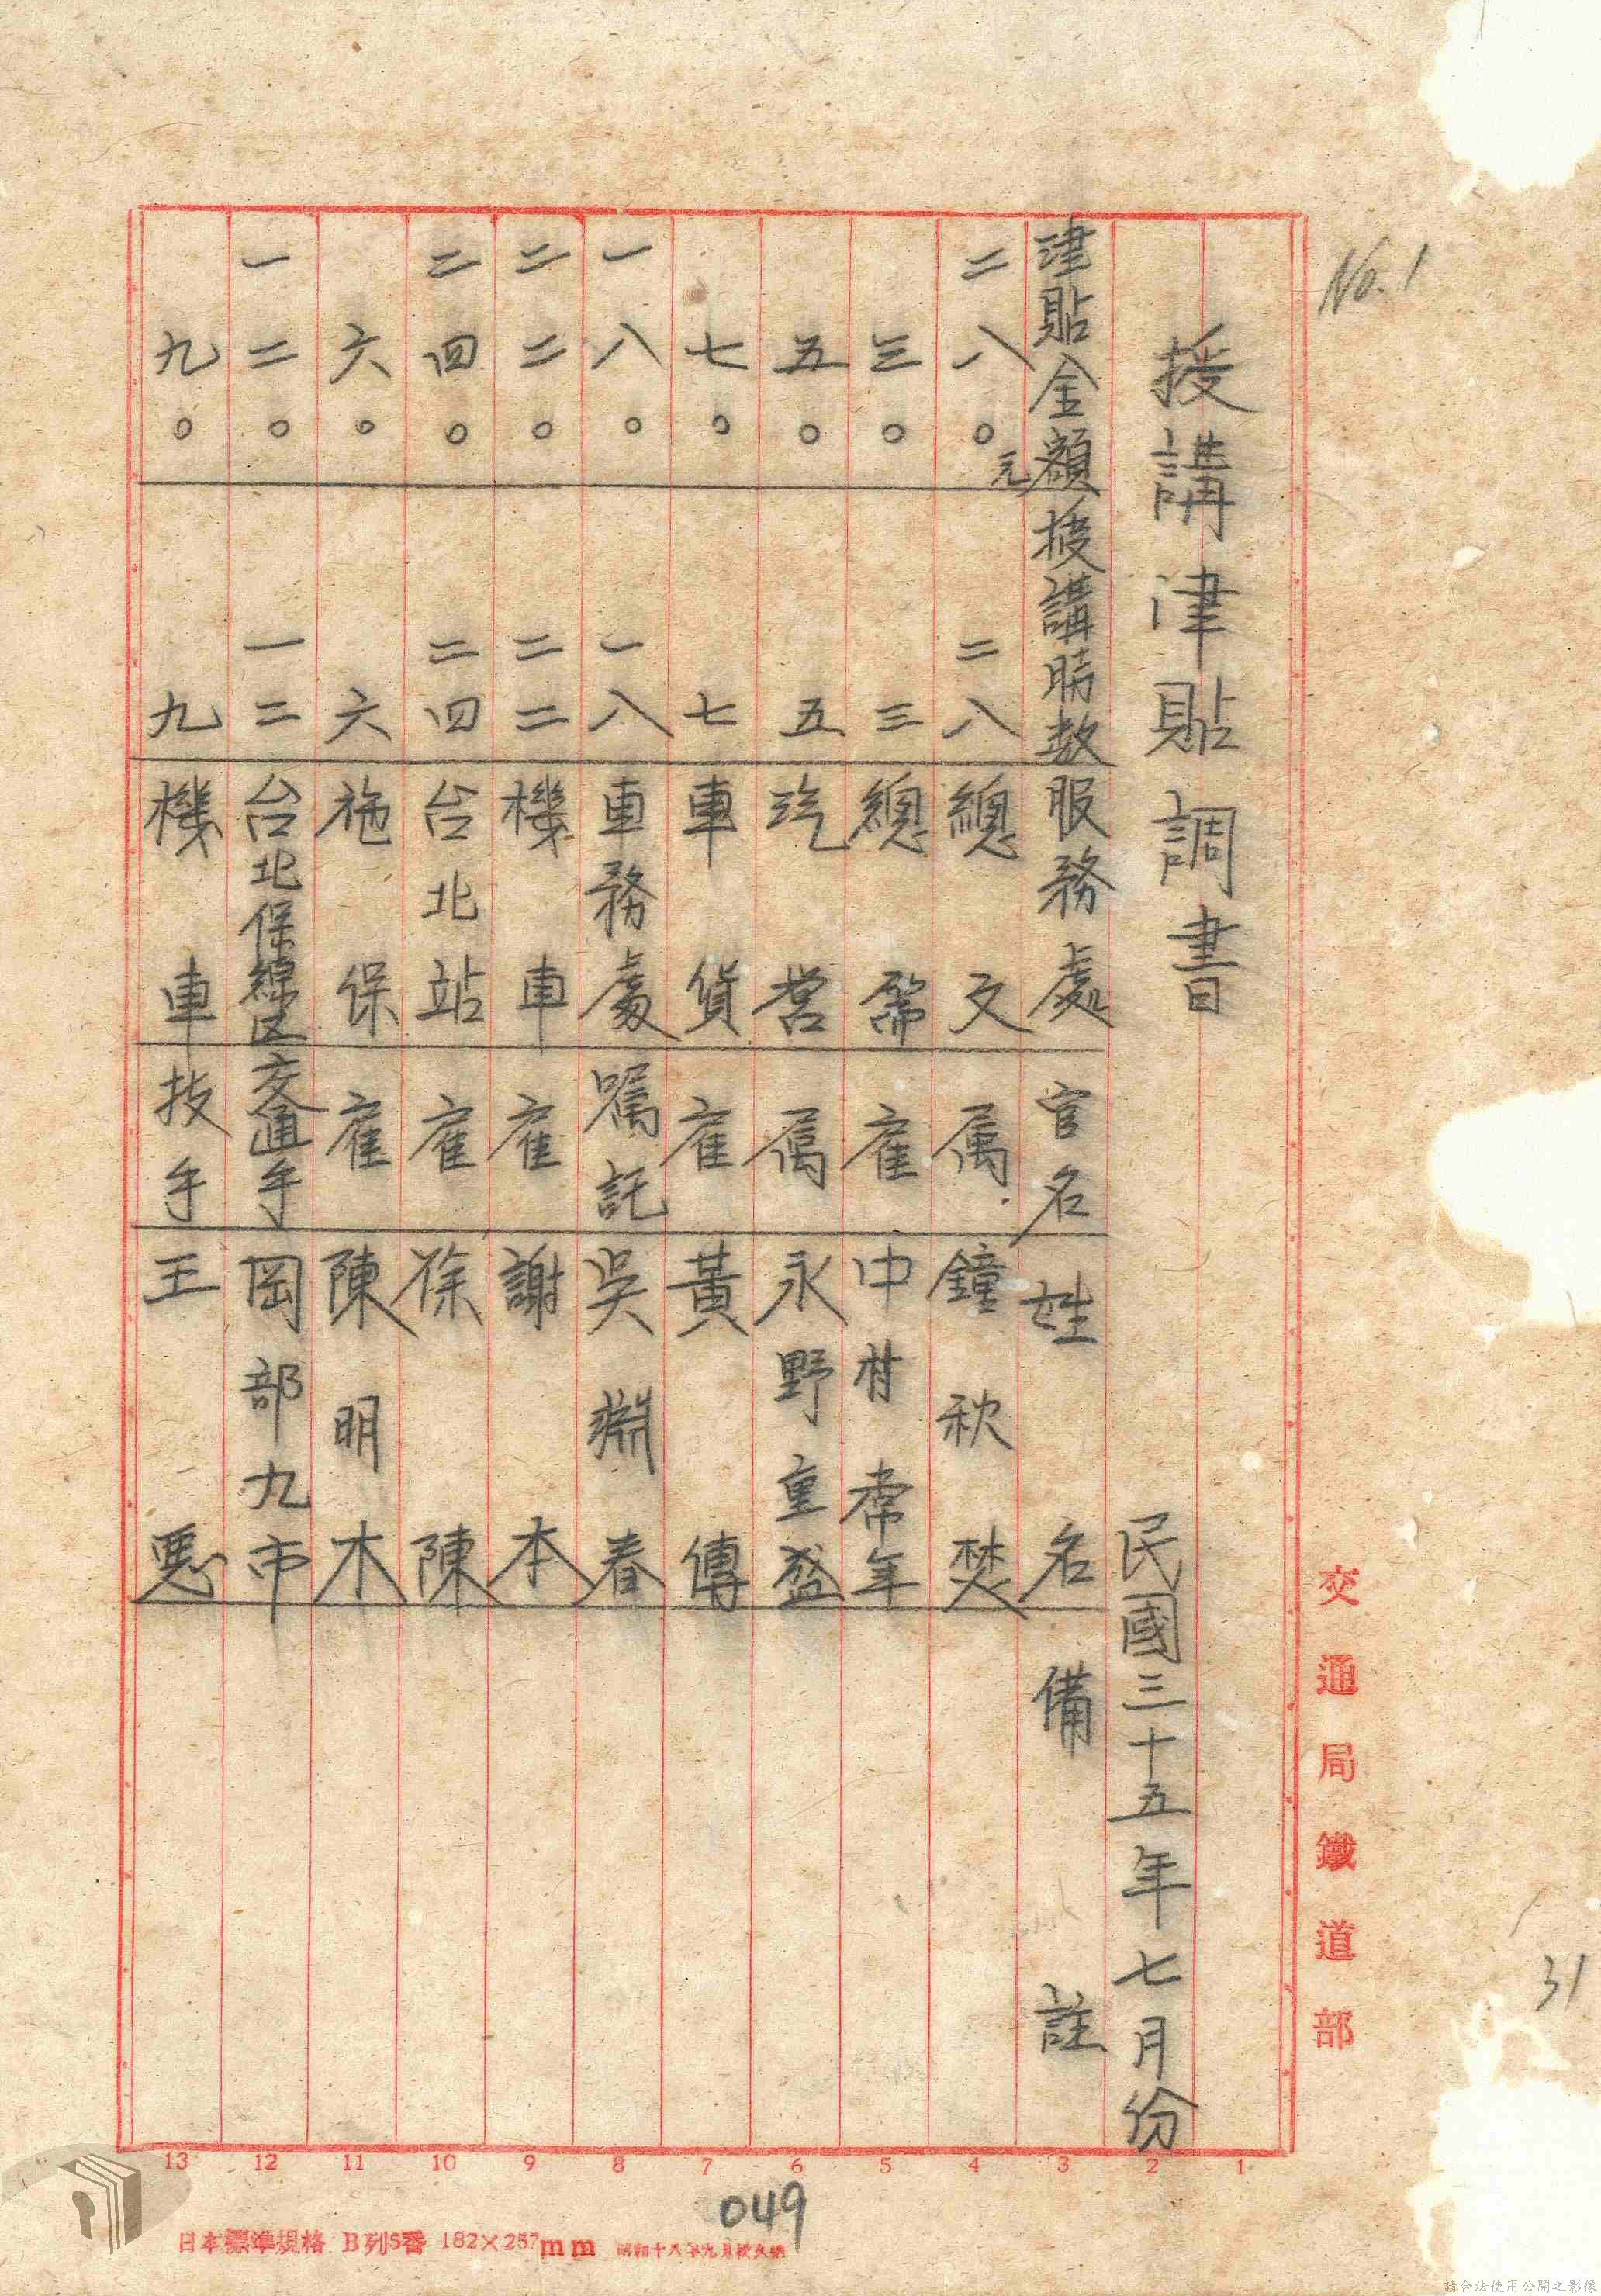 No.1
授講津貼調書
民國三十五年七月份
津貼金額 授講時数 服務處 官名 姓名 備註
二八〇元 二八 總文 属 鐘秋焚
三〇 三 總 雇 中村常年
五〇 五 汽営 属 永野重盛
七〇 七 車貨 雇 黃傳
一八〇 一八 車務處 嘱託 吳淵春
二二〇 二二 機車 雇 謝本
二四〇 二四 台北站 雇 徐陳
六〇 六 施保 雇 陳明木
一二〇 一二 台北保線区 交通手 岡部九市
九〇 九 機車 技手 王
交通局鐵道部
31
13 12 11 10 9 8 7 6 5 4 3 2 1
049
日本標準規格 B列5番 182×257mm
請合法使用公開之影像